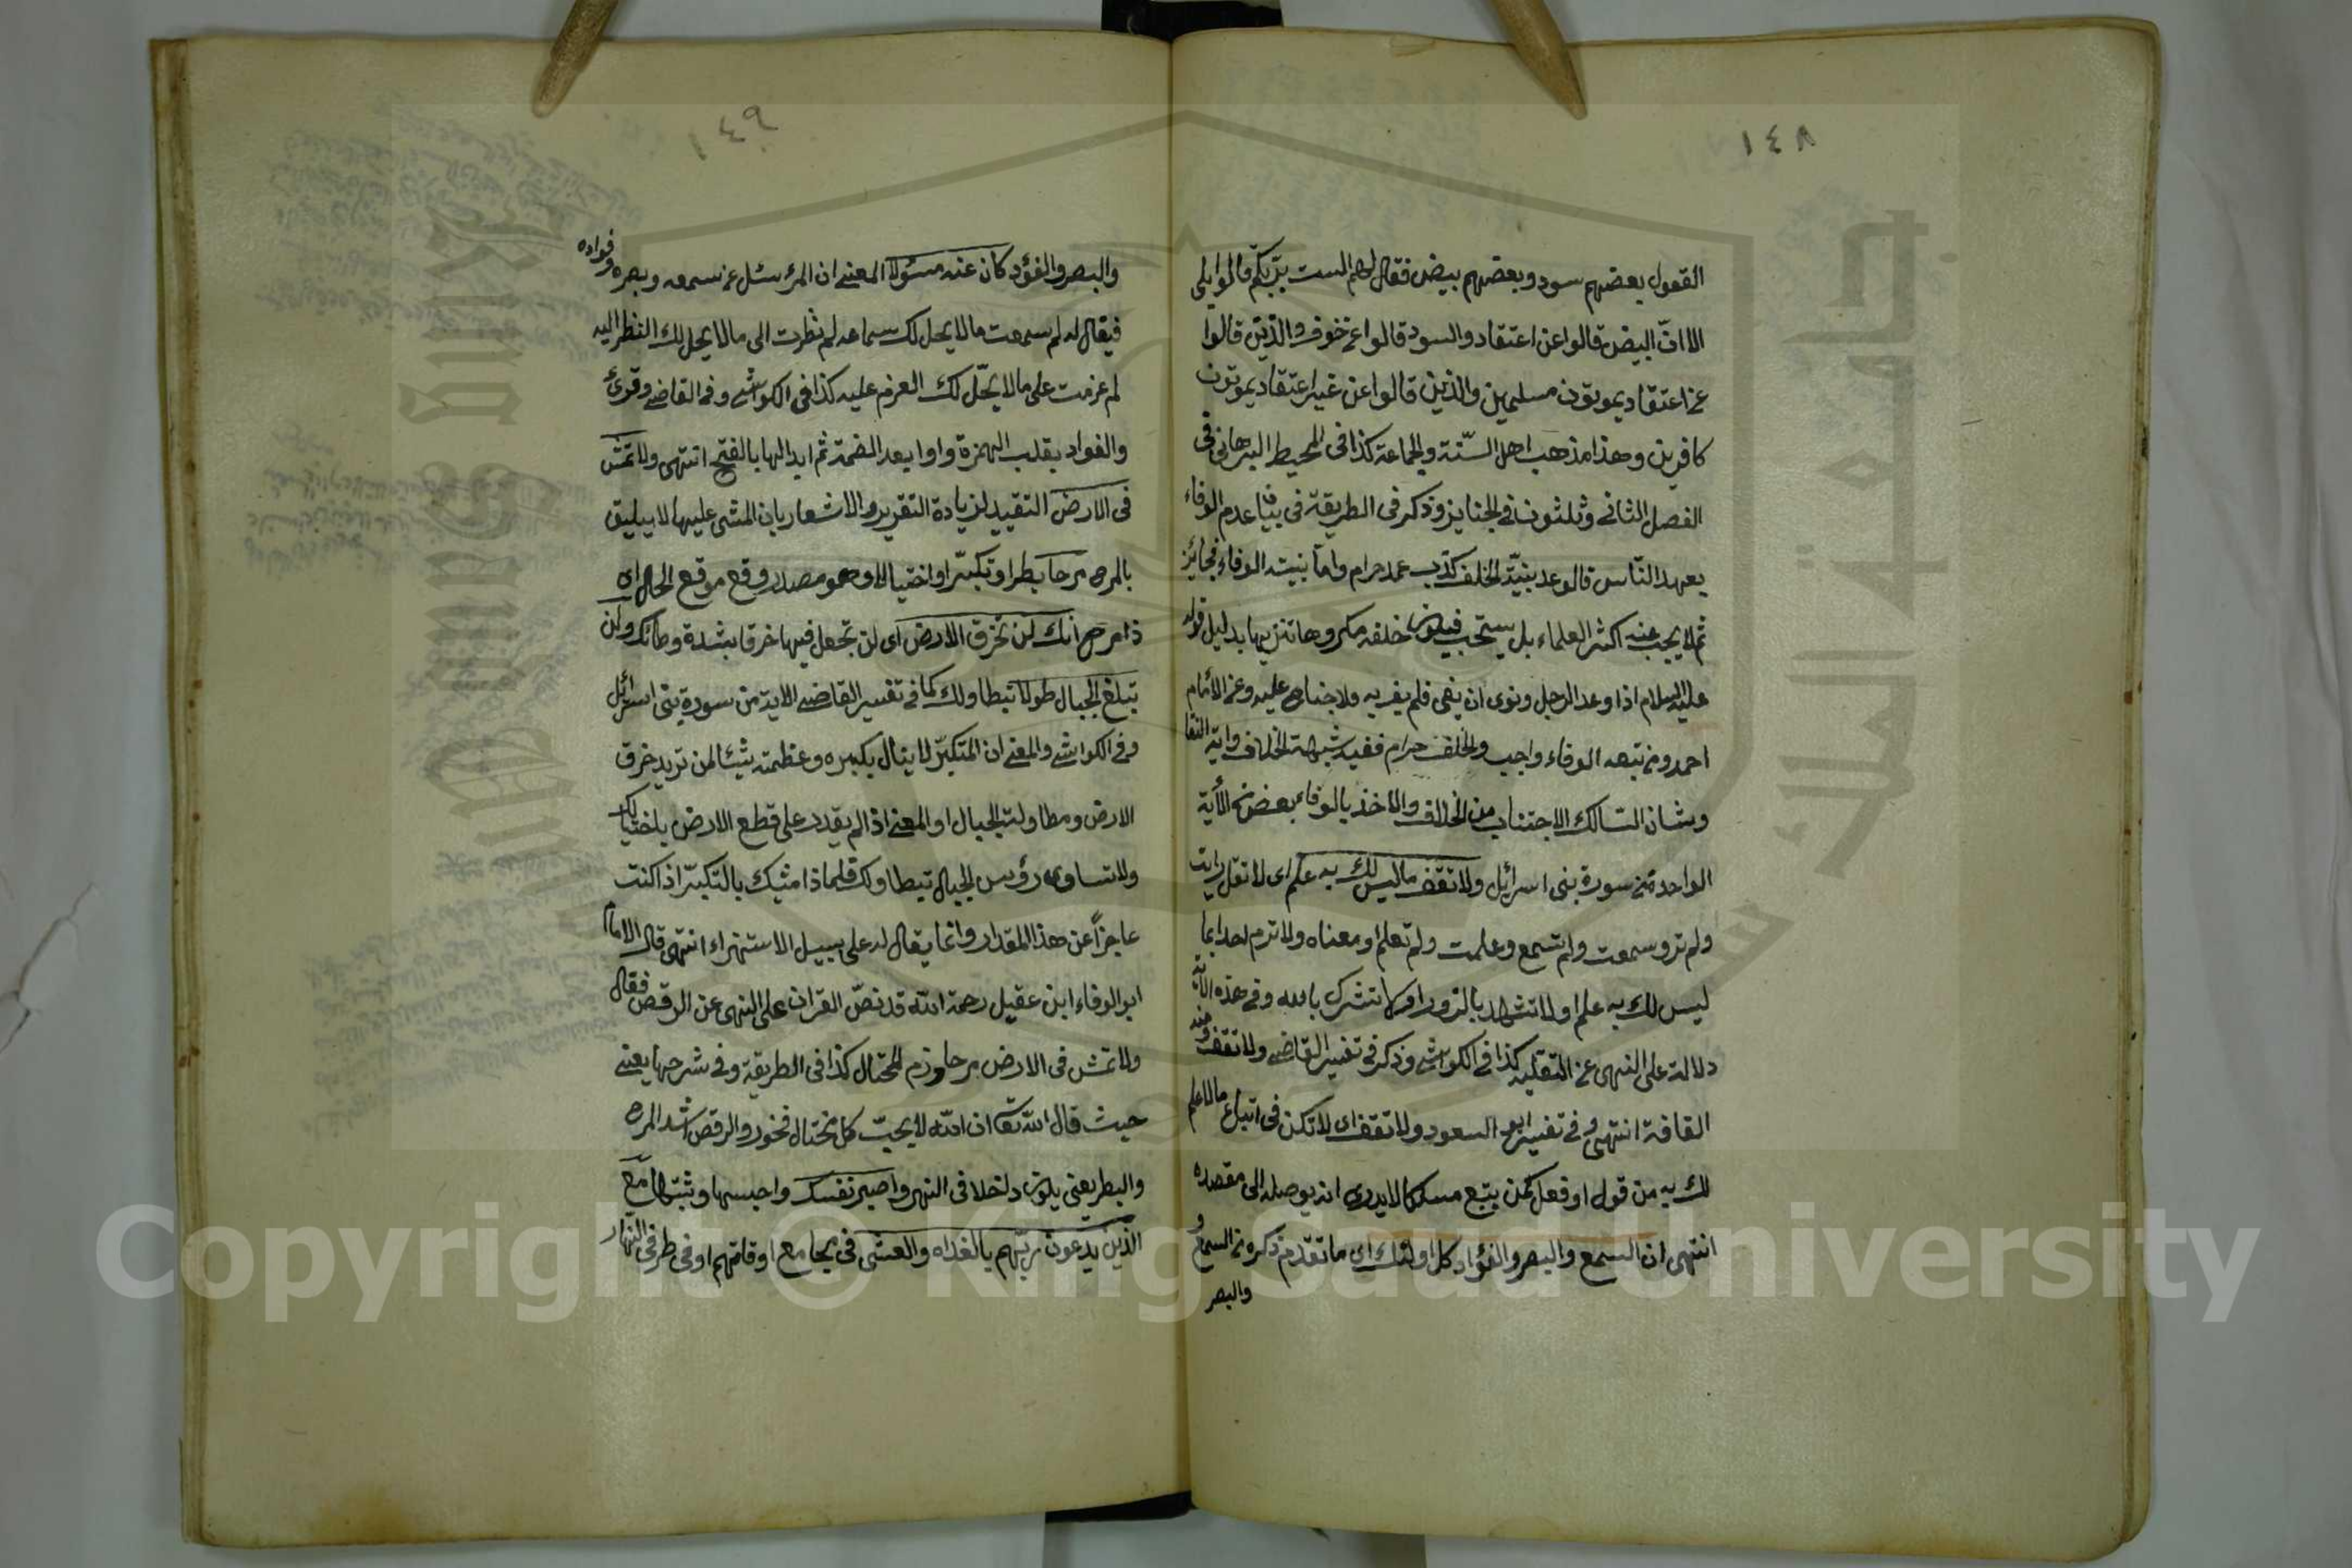 ١٤٨
القعول بعضهم سود وبعضهم بيض فقال لهم الست بربكم قالوا بلى
الا ان البيض قالوا عن اعتقاد والسود قالوا عن خوف والذين قالوا
عن اعتقاد يموتون مسلمين والذين قالوا عن غير اعتقاد يموتون
كافرين وهذا مذهب اهل السّنة والجماعة كذا فى المحيط البرهانى فى
الفصل الثانى وثلثون فى الجنايز وذكر فى الطريقة فى عدم الوفاء
بعهد النّاس قالوعد بنيّة الخلف كذب عمد حرام واما بنية الوفاء فجائز
ثم لا يجب عند اكثر العلماء بل يستحب فيكون خلفه مكروها تنزيها بدليل قوله
عليه السلام اذا وعد الرجل ونوى ان يفى فلم يف به ولا جناح عليه وعن الامام
احمد ومن تبعه الوفاء واجب والخلف حرام ففيه شبهة الخلاف واية
وشان السّالك الاجتناب من الخلاف والاخذ بالوفاء بعض الآية
الواحدة من سورة بنى اسرائل ولا تقف ماليس لك به علم اى لا تقل رايت
ولم تر وسمعت ولم تسمع وعلمت ولم تعلم او معناه ولا ترم احدا بما
ليس لك به علم او لا تشهد بالزور او لا تشرك بالله وفى هذه الآية
دلالة على النهى عن التقليد كذا فى الكواشى وذكر فى تفسير القاضى ولا تقف ومنه
القافة انتهى وفى تفسير ابو السعود ولا تقف اى لا تكن فى اتباع مالا علم
لك به من قول او فعل كمن يتبع مسلكا لا يدرى انه يوصله الى مقصده
انتهى ان السمع والبصر والفؤاد كل اولئك اى ما تقدم ذكره من السمع و
والبصر
١٤٩
والبصر والفؤد كان عنه مسئولا المعنى ان المرء سئل عن سمعه وبصره وفواده
فيقال له لم سمعت مالا يحل لك سماعه لم نظرت الى مالا يحل لك النظر اليه
لم عزمت على مالا يحّل لك العزم عليه كذا فى الكواشى وفى القاضى وقرئ
والفواد بقلب الهمزة واوا بعد الضمة ثم ابدالها بالفتح انتهى ولا تمش
فى الارض التقييد لزيادة التقرير والاشعار بان المشى عليها لا يليق
بالمرح مرحا بطرا وتكبّرا واختيالا وهو مصدر وقع موقع الحال اى
ذا مرح انك لن تخرق الارض اى لن تجعل فيها خرقا بشدة وطائك ولن
تبلغ الجبال طولا تبطاولك كما فى تفسير القاضى الاية من سورة بنى اسرائل
وفى الكواشى والمعنى ان المتكبّر لا ينال بكبره وعظمته شيئا لمن تريد خرق
الارض ومطاولت الجبال او المعنى اذا لم يقدر على قطع الارض باختيالك
ولا تساوى رؤس الجبال تبطاولك فلماذا مشيك بالتكبّر اذا كنت
عاجزاً عن هذا المقدار وانما يقال له على سبيل الاستهزاء انتهى قال الامام
ابو الوفاء ابن عقيل رحمة الله قد نصّ القران على النهى عن الرقص فقال
ولا تمش فى الارض مرحا وذم المختال كذا فى الطريقة وفى شرحها يعنى
حيث قال الله تعا ان الله لا يحبّ كل مختال فخور والرقص اشد المرح
والبطر يعنى يكون داخلا فى النهى واصبر نفسك واحبسها وثبتها مع
الذين يدعون ربّهم بالغداه والعشى فى مجامع اوقاتهم او فى طرفى النّهار
Copyright © King Saud University